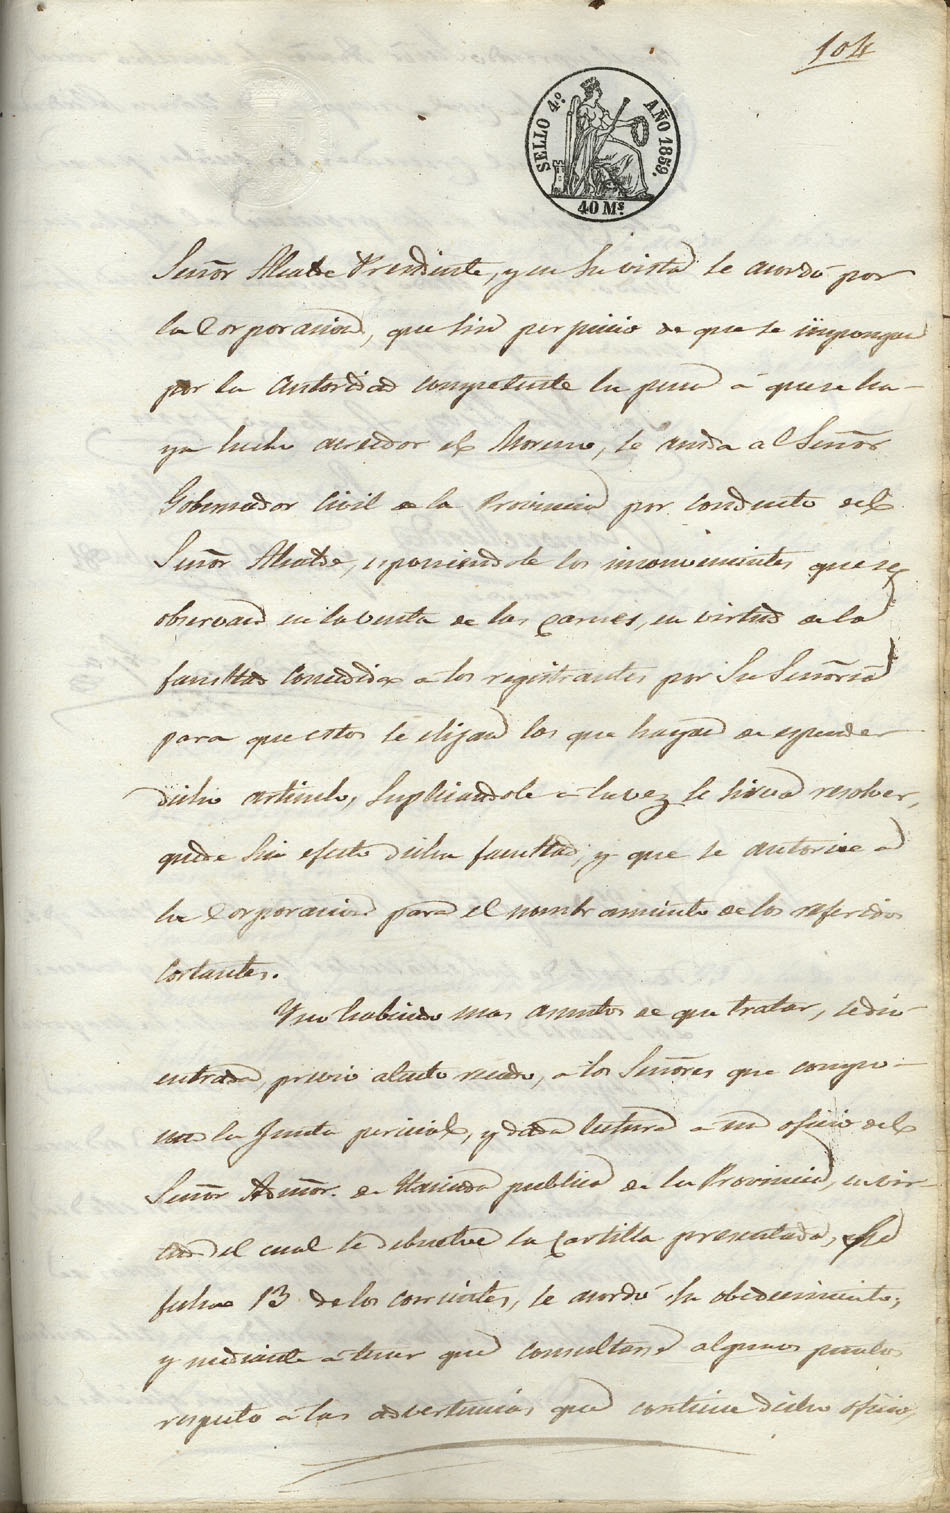 104
SELLO 4.º AÑO 1859.
40 Ms.
Señor Alcalde Presidente, y en su vista se acordó por
la Corporacion, que sin perjuicio de que se imponga
por la autoridad competente la pena á que se ha-
ya hecho acredor el Moreno, se acuda al Señor
Gobernador Civil de la Provincia por conducto del
Señor Alcalde, esponiendole los inconvenientes que se
observan en la venta de las carnes, en virtud de la
facultad concedida a los registrantes por Su Señoria
para que estos se elijan los que hayan de espender
dicho articulo, suplicandole á la vez se sirva resolver,
quede sin efecto dicha facultad, y que se autorice á
la Corporacion para el nombramiento de los referidos
Cortantes.
Y no habiendo mas asuntos de que tratar, se dió
entrada, previo atento recado, a los Señores que compo-
nen la Junta pericial, y dada lectura a un oficio del
Señor Admor. de Hacienda publica de la Provincia, en vir-
tud del cual se debuelve la Cartilla presentada, su
fecha 13 de los corrientes, se acordó su obedecimiento,
y mediante a tener que consultarse algunos puntos
respeto a las advertencias que contiene dicho oficio,